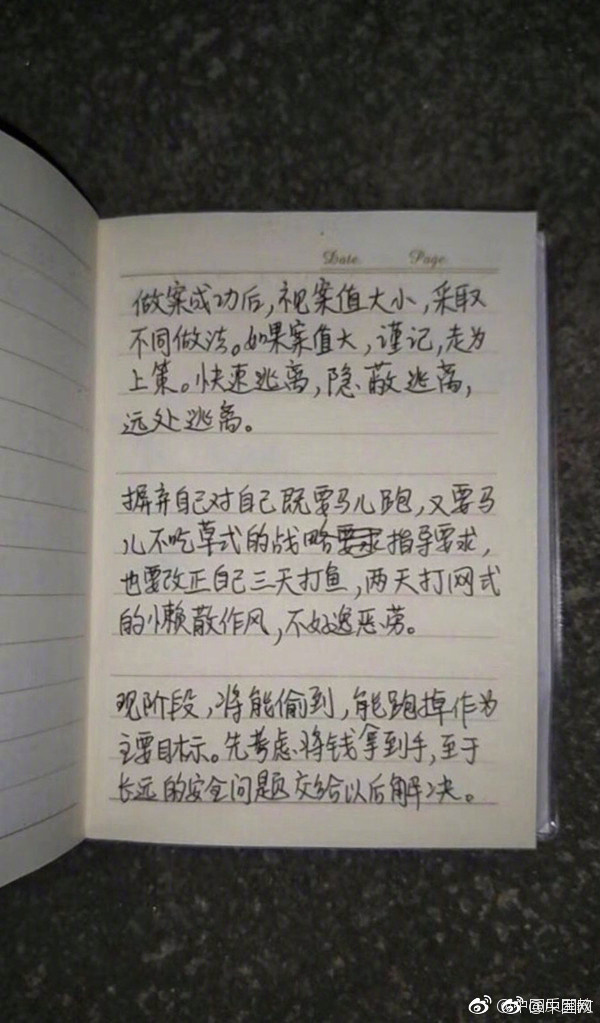 Date. Page.
做案成功后，视案值大小，采取
不同做法。如果案值大，谨记，走为
上策。快速逃离，隐蔽逃离，
远处逃离。
摒弃自己对自己既要马儿跑，又要马
儿不吃草式的战略指导要求，
也要改正自己三天打鱼，两天打网式
的懒散作风，不好逸恶劳。
现阶段，将能偷到，能跑掉作为
主要目标。先考虑将钱拿到手，至于
长远的安全问题交给以后解决。